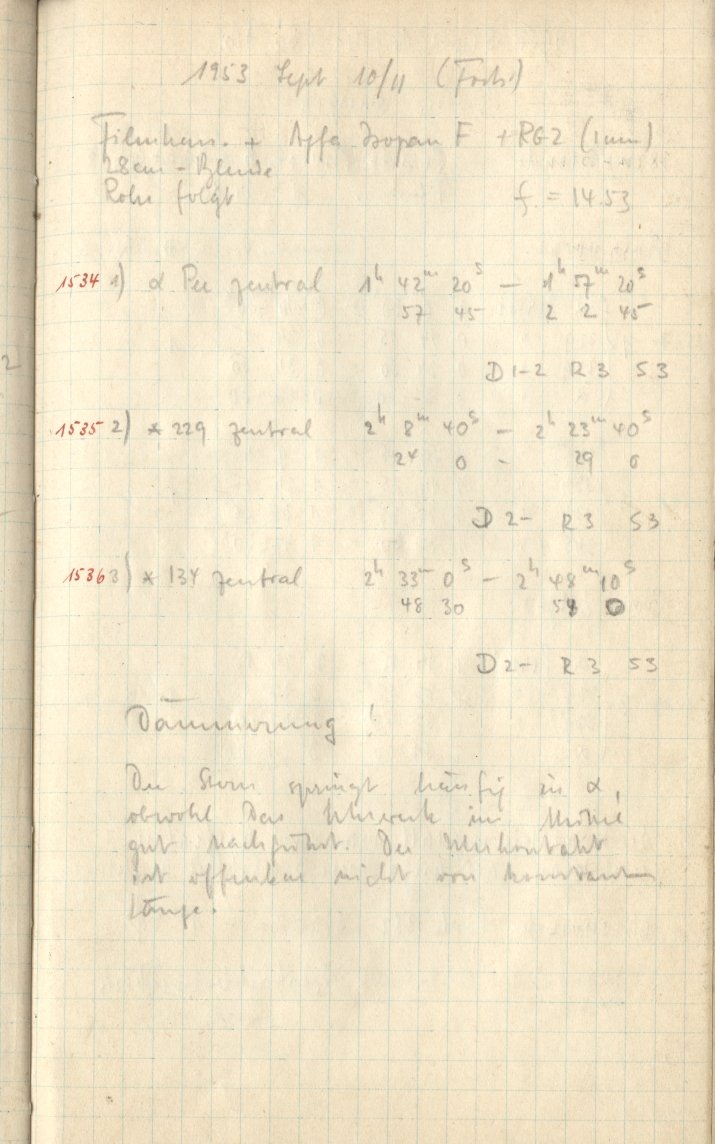 1953 Sept 10/11 (Forts.)
Filmkass. + Agfa Isopan F + RG2 (1mm)
28cm-Blende
Rohr folgt f. = 14.53
1534 1) α Per zentral 1h 42m 20s — 1h 57m 20s
57 45 2 2 45
D1-2 R3 S3
1535 2) * 229 zentral 2h 8m 40s — 2h 23m 40s
24 0 - 29 0
D2- R3 S3
1536 3) * 134 zentral 2h 33m 0s — 2h 48m 10s
48 30 0
D2- R3 S3
Dämmerung!
Der Stern springt häufig in α,
obwohl das Uhrwerk im Mittel
gut nachführt. Der Uhrkontakt
ist offenbar nicht von konstanter
Länge.
2